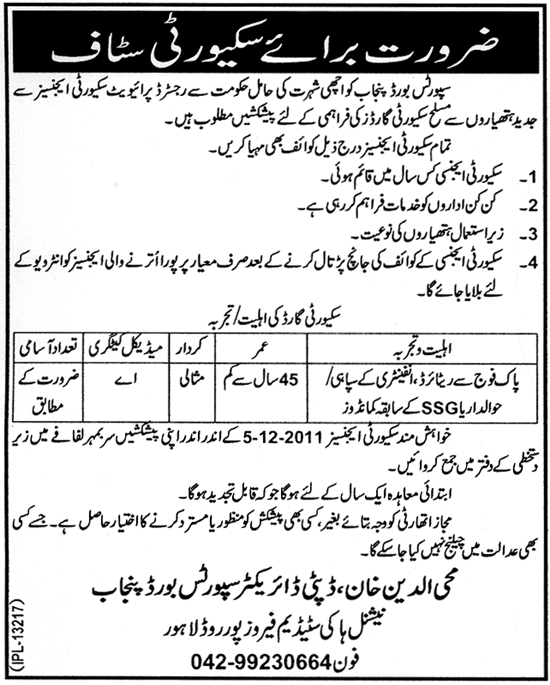 ضرورت برائے سکیورٹی سٹاف
سپورٹس بورڈ پنجاب کو اچھی شہرت کی حامل حکومت سے رجسٹرڈ پرائیویٹ سکیورٹی ایجنسیز سے
جدید ہتھیاروں سے مسلح سکیورٹی گارڈز کی فراہمی کے لئے پیشکشیں مطلوب ہیں۔
تمام سکیورٹی ایجنسیز درج ذیل کوائف بھی مہیا کریں۔
1۔ سکیورٹی ایجنسی کس سال میں قائم ہوئی۔
2۔ کن کن اداروں کو خدمات فراہم کر رہی ہے۔
3۔ زیر استعمال ہتھیاروں کی نوعیت۔
4۔ سکیورٹی ایجنسی کے کوائف کی جانچ پڑتال کرنے کے بعد صرف معیار پر پورا اُترنے والی ایجنسیز کو انٹرویو کے
لئے بلایا جائے گا۔
سکیورٹی گارڈ کی اہلیت/تجربہ
اہلیت و تجربہ عمر کردار میڈیکل کیٹگری تعداد آسامی
پاک فوج سے ریٹائرڈ، انفینٹری کے سپاہی/ 45 سال سے کم مثالی اے ضرورت کے
حوالدار یا SSG کے سابقہ کمانڈوز مطابق
خواہش مند سکیورٹی ایجنسیز 5-12-2011 کے اندر اندر اپنی پیشکشیں سربمہر لفافے میں زیر
دستخطی کے دفتر میں جمع کروائیں۔
ابتدائی معاہدہ ایک سال کے لئے ہوگا جو کہ قابل تجدید ہوگا۔
مجاز اتھارٹی کو وجہ بتائے بغیر، کسی بھی پیشکش کو منظور یا مسترد کرنے کا اختیار حاصل ہے۔ جسے کسی
بھی عدالت میں چیلنج نہیں کیا جا سکے گا۔
محی الدین خان، ڈپٹی ڈائریکٹر سپورٹس بورڈ پنجاب
نیشنل ہاکی سٹیڈیم فیروز پور روڈ لاہور
فون 042-99230664
(IPL-13217)